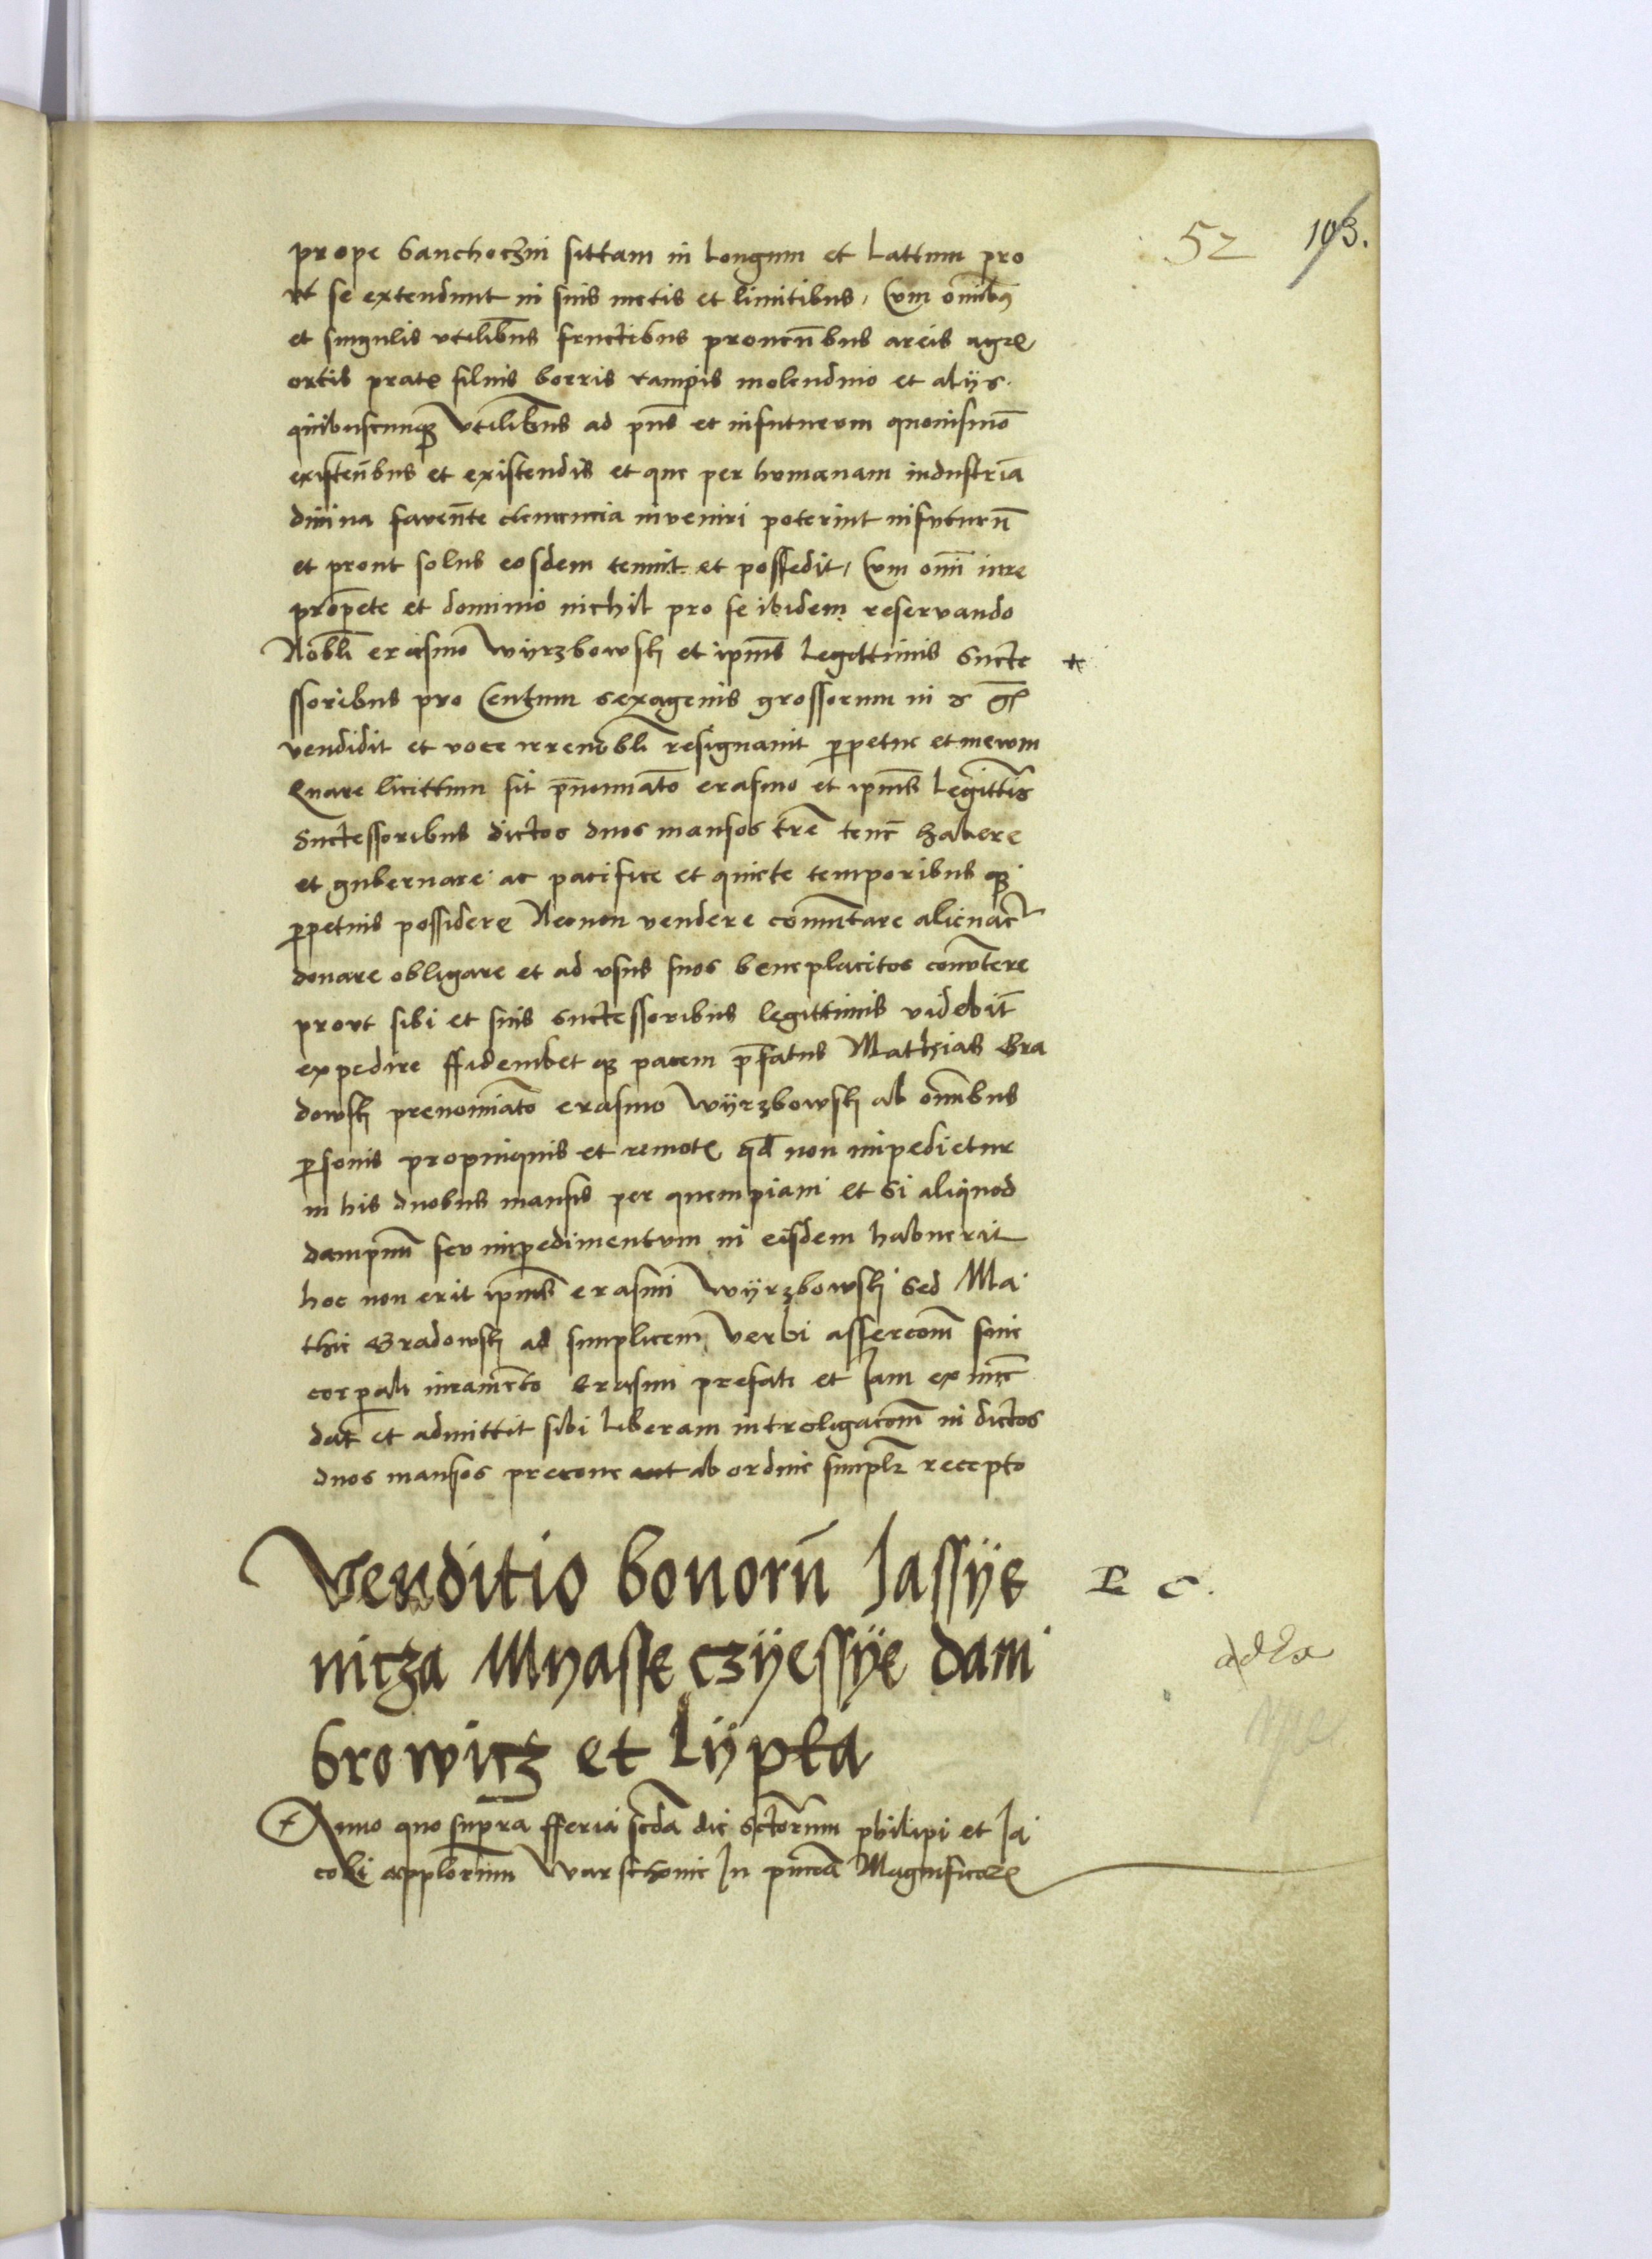 52 103.
prope Ganchoczin sittam in Longum et Lattum pro
vt se extendunt in suis metis et limitibus, Cum omnibꝫ
et singulis vtilibus fructibus prouentibus areis agris
ortis pratis siluis borris rampis molendino et alijs
quibuscunque Vtilitibus ad pñs et infuturum quouismo
existentibus et existendis et que per humanam industria
diuina favente clemencia inveniri poterint infuturū
et prout solus eosdem tenuit et possedit, Cum omni iure
propete et dominio nichil pro se ibidem reservando
Nobli erasmo Wyrzbowski et ipius Legittimis Sucte
ssoribus pro Centum sexagenis grossorum in
vendidit et voce irreuobli resignauit perpetue et in ewm
Quare licittum sit prenominato erasmo et ipius Legittis
Suctessoribus dictos duos mansos tenē habere
et gubernare ac pacifice et quiete temporibus qꝫ
perpetuis possidere Necnon vendere comutare alienare
donare obligare et ad vsus suos beneplacitos convertere
prout sibi et suis suctessoribus legittimis videbit
expedire ffideiubet qꝫ pacem prefatus Mathias Gra
dowski prenominato erasmo Wyrzbowski ab omnibus
personis propinquis et remotis qd non impedietur
in his duobus mansis per quempiam et Si aliquod
dampnum seu impedimentum in eisdem habuerit
hoc non erit ipius erasmi Wyrzbowski Sed Ma
thie Gradowski ad simplicem Verbi assercom sine
corporali iuramento Erasmi prefati et Jam ex nunc
dat et admittit sibi Liberam introligacom in dictos
duos mansos precone aut ab ordine simplr recepto
Venditio bonorū Jassye
nicza Mnasse czyessye dam
browicz et Lypka
P C.
Anno quo supra fferia scda die Sctorum philipi et Ja
cobi applorum Warschouie In pnncia Magnificorum